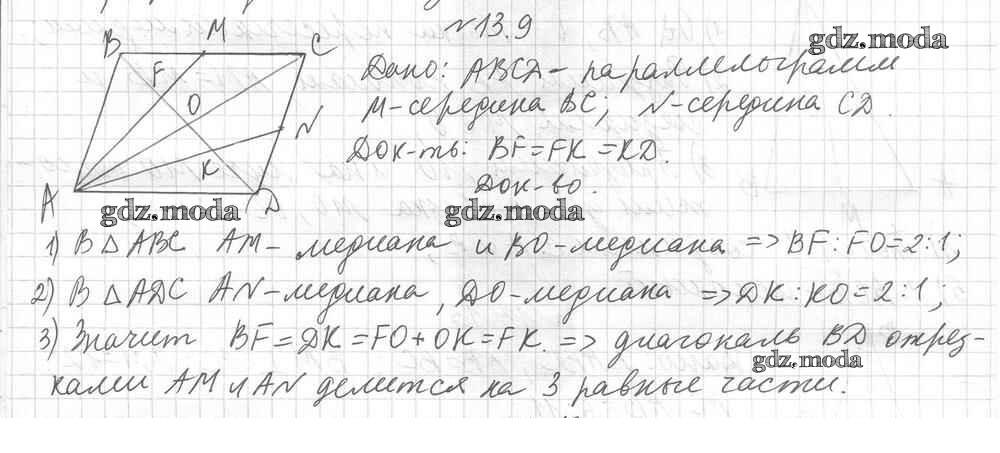 № 13.9
B M C
F
O
N
K
A D
gdz.moda
Дано: ABCD - параллелограмм
M - середина BC; N - середина CD.
Док-ть: BF = FK = KD.
Док-во.
gdz.moda
gdz.moda
1) В △ABC AM - медиана и BO - медиана => BF : FO = 2 : 1;
2) В △ADC AN - медиана, DO - медиана => DK : KO = 2 : 1;
3) Значит BF = DK = FO + OK = FK. => диагональ BD отрез-
gdz.moda
ками AM и AN делится на 3 равные части.